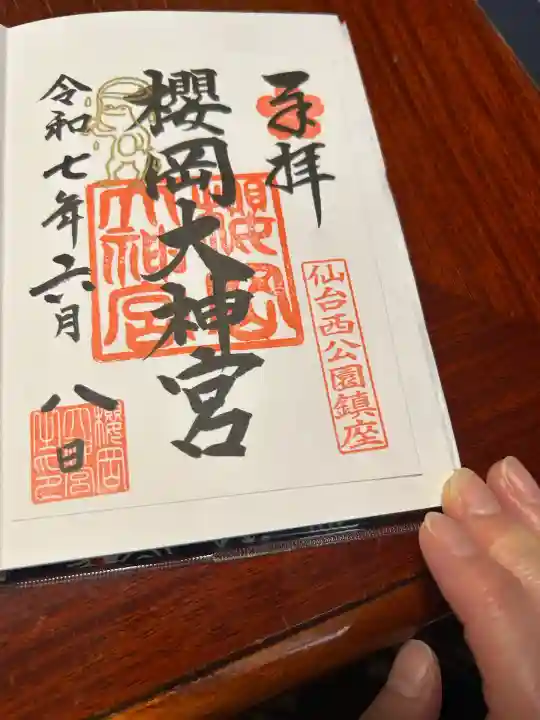 奉拝
仙台西公園鎮座
櫻岡大神宮
櫻岡大神宮
令和七年六月八日